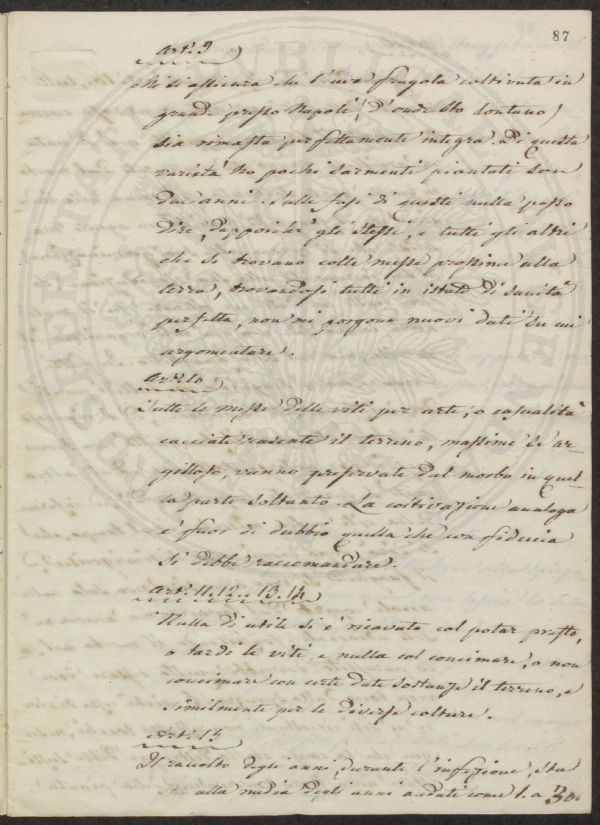 87
Art.° 9
Mi si assicura che l'uva fragola coltivata in
grande presso Napoli (d'onde sto lontano)
sia rimasta perfettamente integra. Di questa
varietà ho pochi sarmenti piantati son
due anni. Sulle fasi di questi nulla posso
dire, dappoichè gli stessi, e tutti gli altri
che si trovano colle messe prossime alla
terra, trovandosi tutti in istato di sanità
perfetta, non mi porgono nuovi dati su cui
argomentare.
Art.° 10
Tutte le messe delle viti per arte, o casualità
cacciate radente il terreno, massime se ar-
gilloso, vanno preservate dal morbo in quel-
la parte soltanto. La coltivazione analoga
è fuor di dubbio quella che con fiducia
si debbe raccomandare.
Art.i 11. 12. 13. 14
Nulla di utile si è ricavato col potar presto,
o tardi le viti, e nulla col concimare, o non
concimare con certe date sostanze il terreno, e
similmente per le diverse colture.
Art.° 15
Il raccolto degli anni, durante l'infezione, sta
alla media degli anni andati come 1. a 30.